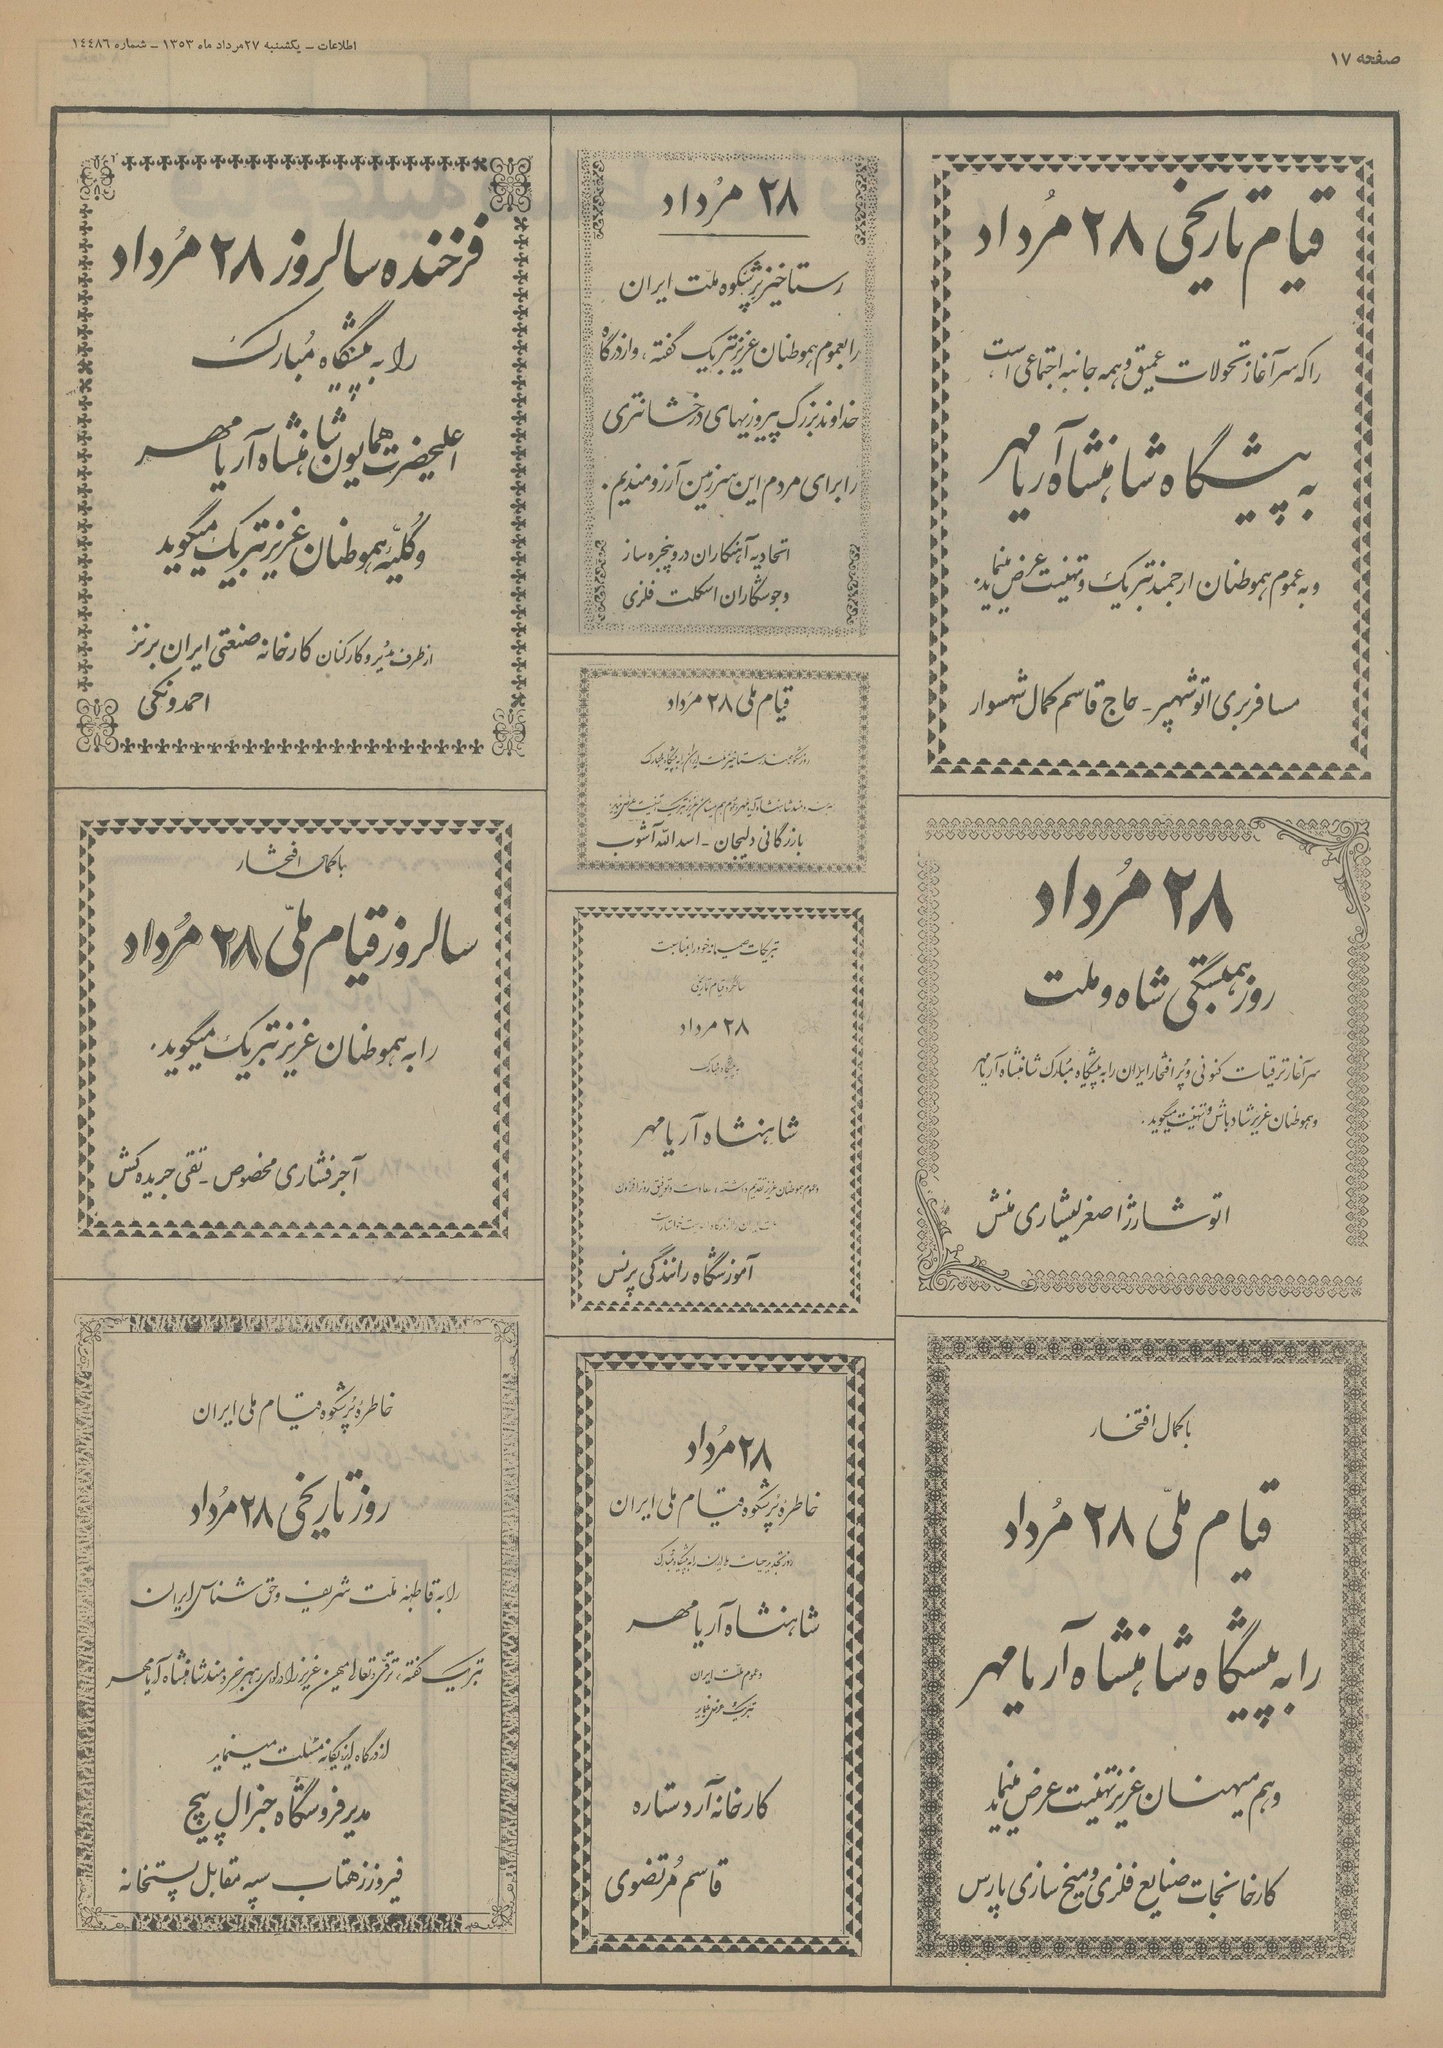 صفحه ۱۷
اطلاعات – یکشنبه ۲۷ مرداد ماه ۱۳۵۳ – شماره ۱۴۴۸۶
قیام تاریخی ۲۸ مرداد
را که سرآغاز تحولات عمیق و همه جانبه اجتماعی است
به پیشگاه شاهنشاه آریامهر
و به عموم هموطنان ارجمند تبریک و تهنیت عرض مینماید.
مسافربری اتو شهپر - حاج قاسم کمال شهسوار
۲۸ مرداد
روز همبستگی شاه و ملت
سرآغاز ترقیات کنونی و پر افتخار ایران را به پیشگاه مبارک شاهنشاه آریامهر
و هموطنان عزیز شادباش و تهنیت میگوید.
اتو شارژ اصغر یشاری منش
با کمال افتخار
قیام ملی ۲۸ مرداد
را به پیشگاه شاهنشاه آریامهر
و هم میهنان عزیز تهنیت عرض مینماید
کارخانجات صنایع فلزی و میخ سازی پارس
۲۸ مرداد
رستاخیز پرشکوه ملت ایران
را بعموم هموطنان عزیز تبریک گفته، و از درگاه
خداوند بزرگ پیروزیهای درخشانتری
را برای مردم این سرزمین آرزومندیم.
اتحادیه آهنکاران در و پنجره ساز
و جوشکاران اسکلت فلزی
قیام ملی ۲۸ مرداد
رستاخیز ملت ایران را به پیشگاه مبارک
بازرگانی دلیجان - اسدالله آشوب
تبریکات صمیمانه خود را بمناسبت
سالگرد قیام تاریخی
۲۸ مرداد
به پیشگاه مبارک
شاهنشاه آریامهر
و عموم هموطنان عزیز تقدیم داشته، سعادت و توفیق روزافزون
آموزشگاه رانندگی پرنس
۲۸ مرداد
خاطره پرشکوه قیام ملی ایران
روز تجدید حیات ملی ایران را به پیشگاه مبارک
شاهنشاه آریامهر
و عموم ملت ایران
تبریک عرض مینماید
کارخانه آرد ستاره
قاسم مرتضوی
فرخنده سالروز ۲۸ مرداد
را به پیشگاه مبارک
اعلیحضرت همایون شاهنشاه آریامهر
و کلیه هموطنان عزیز تبریک میگوید
از طرف مدیر و کارکنان کارخانه صنعتی ایران برنز
احمد ونکی
با کمال افتخار
سالروز قیام ملی ۲۸ مرداد
را به هموطنان عزیز تبریک میگوید.
آجر فشاری مخصوص - تقی جریده کش
خاطره پرشکوه قیام ملی ایران
روز تاریخی ۲۸ مرداد
را به قاطبه ملت شریف و حق شناس ایران
تبریک گفته، ترقی و تعالی میهن عزیز را در لوای رهبر خردمند شاهنشاه آریامهر
از درگاه ایزد یگانه مسئلت مینماید
مدیر فروشگاه جنرال پیچ
فیروز زهتاب سپه مقابل پستخانه